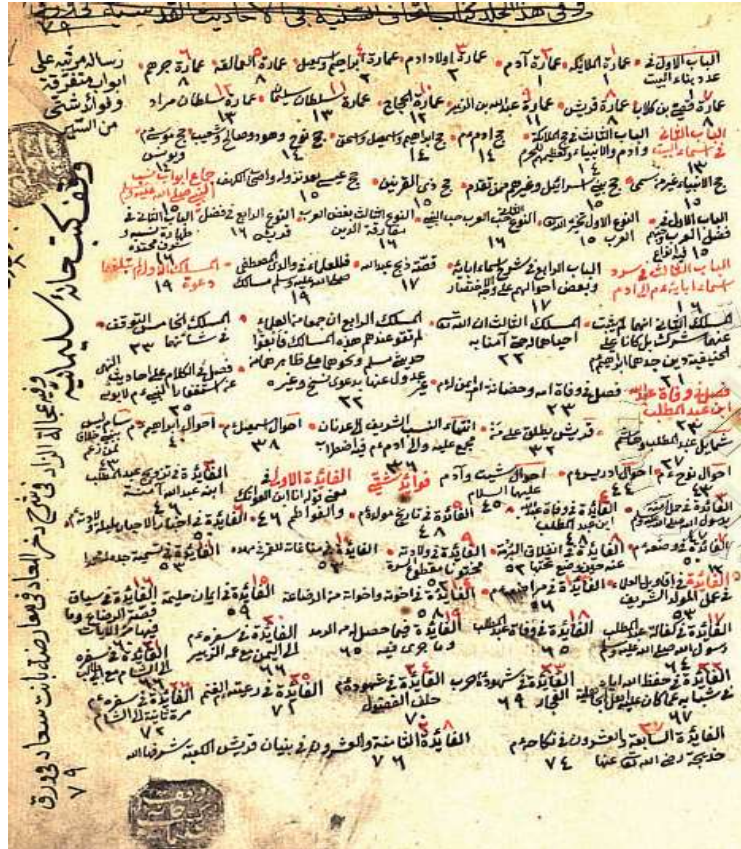 وفي هذا المجلد كتاب الاتحافات السنية في الاحاديث القدسية في ورق ٧٩
الباب الاول في عدد بناء البيت ١ عمارة الملائكة ١ ٢ عمارة آدم ١ ٣ عمارة اولاد ادم ٢ ٤ عمارة ابراهيم واسمعيل ٢ ٥ عمارة العمالقة ٨ ٦ عمارة جرهم ٨
٧ عمارة قصي بن كلاب ٨ ٨ عمارة قريش ٨ ٩ عمارة عبد الله بن الزبير ١١ ١٠ عمارة الحجاج ١٢ ١١ عمارة السلطان سليمان ١٣ ١٢ عمارة سلطان مراد ١٣
الباب الثاني في اسماء البيت ١٣ الباب الثالث في حج الملائكة وآدم والانبياء وتعظيمهم للحرم ١٤ حج ادم عم ١٤ حج ابراهيم واسمعيل واسحق ١٤ حج نوح وهود وصالح وشعيب ١٤ حج موسى ويونس
حج الانبياء غير من سمى ١٥ حج بني اسرائيل وغيرهم ممن تقدم ١٥ حج ذي القرنين ١٥ حج عيسى بعد نزوله واصحاب الكهف ١٥ جماع ابواب نسب النبي صلى الله عليه وسلم ١٥
الباب الاول في فضل العرب وحبهم ١٥ النوع الاول العرب ١٥ النوع الثاني حب العرب حب النبي ١٦ النوع الثالث بغض العرب مفارقة الدين ١٦ النوع الرابع في فضل قريش ١٦ الباب الثاني في طهارة نسبه وشرف محتده ١٦
الباب الثالث في سرد اسماء اباية عم الى ادم ١٦ الباب الرابع في شرح اسماء اباية وبعض احوالهم على وجه الاختصار ١٧ قصة ذبح عبد الله ١٧ فللعلماء في والدي المصطفى صلى الله عليه وسلم مسالك ١٩ المسلك الاول لم تبلغهما دعوة ١٩
المسلك الثاني انهما لم يثبت عنهما شرك بل كانا على الحنيفية دين جدهما ابراهيم ٢١ المسلك الثالث ان الله تع احياهما له حتى آمنا به ٢٢ المسلك الرابع ان جمعا من العلماء لم تقو عندهم هذه المسالك فابقوا حديثي مسلم ونحوهما على ظاهرهما من غير عدول عنها بدعوى نسخ وغيره ٢٢ المسلك الخامس التوقف في شانهما ٢٣
فصل في وفاة عبد الله ابن عبد المطلب ٢٣ فصل في وفاة امه وحضانة ام ايمن له عم ٢٣ فصل في الكلام على احاديث النهي عن استغفار النبي عم لابويه ٢٥
شمايل عبد المطلب وهاشم ٢٧ قريش يطلق على من ٣٢ انتهاء النسب الشريف الى عدنان مجمع عليه والى آدم عم فيه اضطراب ٣٦ احوال اسمعيل عم ٣٨ احوال ابراهيم عم ٤٠
احوال نوح عم ٤٣ احوال ادريس عم ٤٤ احوال شيث وآدم عليهما السلام ٤٥ فوائد شتى الفائدة الاولى في معنى قوله انا ابن العواتك والفواطم ٤٦ ٢ الفائدة في تزويج عبد المطلب ابنه عبد الله آمنة ٤٦
٣ الفائدة في حمل آمنة برسول الله صلى الله عليه وسلم ٤٧ ٤ الفائدة في وفاة عبد الله ابن عبد المطلب ٤٨ ٥ الفائدة في تاريخ مولده عم ٤٨ ٦ الفائدة في اخبار الاحبار ليلة ولادته عم ٥٠
٧ الفائدة في وضعه عم ٥٠ ٨ الفائدة في انفلاق البرمة عنه حين وضع تحتها ٥٢ ٩ الفائدة في ولادته مختونا مقطوع السرة ٥٢ ١٠ الفائدة في مناغاته للقمر في مهده ٥٣ الفائدة في تسمية جده محمدا ٥٣
الفائدة في اقاويل العلماء في عمل المولد الشريف ٥٣ الفائدة في مراضعه عم ٥٦ ١٤ الفائدة في اخوته واخواته من الرضاعة ٥٨ ١٥ الفائدة في ايمان حليمة ٥٩ ١٦ الفائدة في سياق قصة الرضاع وما فيها من الآيات ٦٠
١٧ الفائدة في كفالة عبد المطلب رسول الله صلى الله عليه وسلم ٦٤ ١٨ الفائدة في وفاة عبد المطلب ٦٥ ١٩ الفائدة فيما حصل له من الرمد وما جرى فيه ٦٥ ٢٠ الفائدة في سفره عم الى اليمن مع عمه الزبير ٦٦ ٢١ الفائدة في سفره الى الشام مع ابي طالب ٦٦
٢٢ الفائدة في حفظ الله اياه في شبابه عما كان عليه اهل الجاهلية ٦٧ ٢٣ الفائدة في شهوده حرب الفجار ٦٩ ٢٤ الفائدة في شهوده عم حلف الفضول ٧٠ ٢٥ الفائدة في رعيته الغنم ٧٢ ٢٦ الفائدة في سفره عم مرة ثانية الى الشام ٧٢
الفائدة السابعة والعشرون في نكاحه عم خديجة رضي الله تع عنها ٧٤ الفائدة الثامنة والعشرون في بنيان قريش الكعبة شرفها الله ٧٦
رسالة مرتبة على ابواب متفرقة وفوائد شتى من السير
وقف كتبخانه سليمانيه
وفيه عجالة الزاد في شرح ذخر المعاد في معارضة بانت سعاد في ورق ٧٩